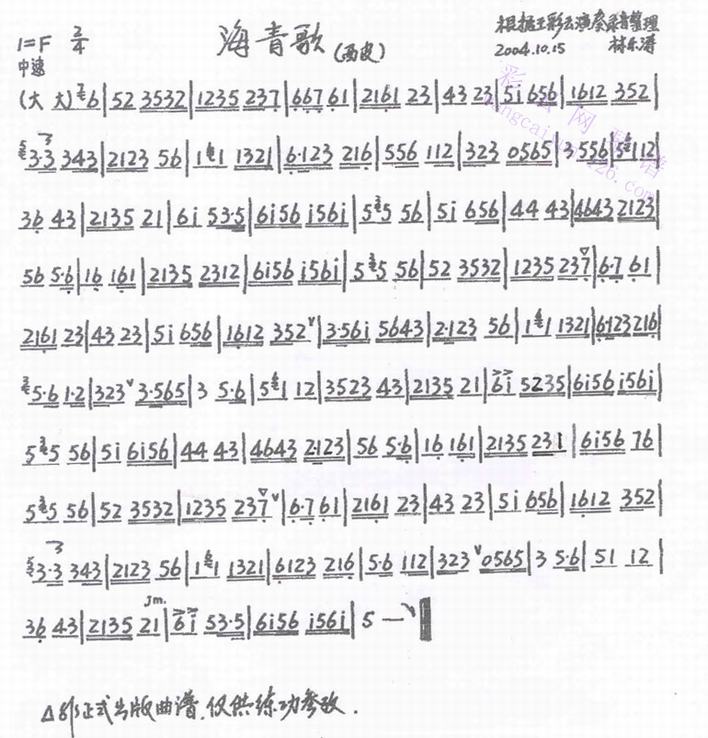 海青歌(西皮)
1=F 2/4
中速
根据王彩云演奏录音整理
2004.10.15 林东涛
(大 大) 6 | 52 3532 | 1235 237 | 667 61 | 2161 23 | 43 23 | 5i 656 | 1612 352 |
3·3 343 | 2123 56 | 1 1 1321 | 6·123 216 | 556 112 | 323 0565 | 3·556 | 5 112 |
36 43 | 2135 21 | 6i 53·5 | 6i56 i56i | 5 5 56 | 5i 656 | 44 43 | 4643 2123 |
56 5·6 | 16 161 | 2135 2312 | 6i56 i56i | 5 5 56 | 52 3532 | 1235 237 | 6·7 61 |
2161 23 | 43 23 | 5i 656 | 1612 352 | 3·56i 5643 | 2·123 56 | 1 1 1321 | 6123 216 |
5·6 1·2 | 323 3·565 | 3 5·6 | 5 1 12 | 3523 43 | 2135 21 | 6i 5235 | 6i56 i56i |
5 5 56 | 5i 6i56 | 44 43 | 4643 2123 | 56 5·6 | 16 161 | 2135 231 | 6i56 76 |
5 5 56 | 52 3532 | 1235 237 | 6·7 61 | 2161 23 | 43 23 | 5i 656 | 1612 352 |
3·3 343 | 2123 56 | 1 1 1321 | 6123 216 | 5·6 112 | 323 0565 | 3 5·6 | 51 12 |
36 43 | 2135 21 | 6i 53·5 | 6i56 i56i | 5 — |
△非正式出版曲谱,仅供练功参考.